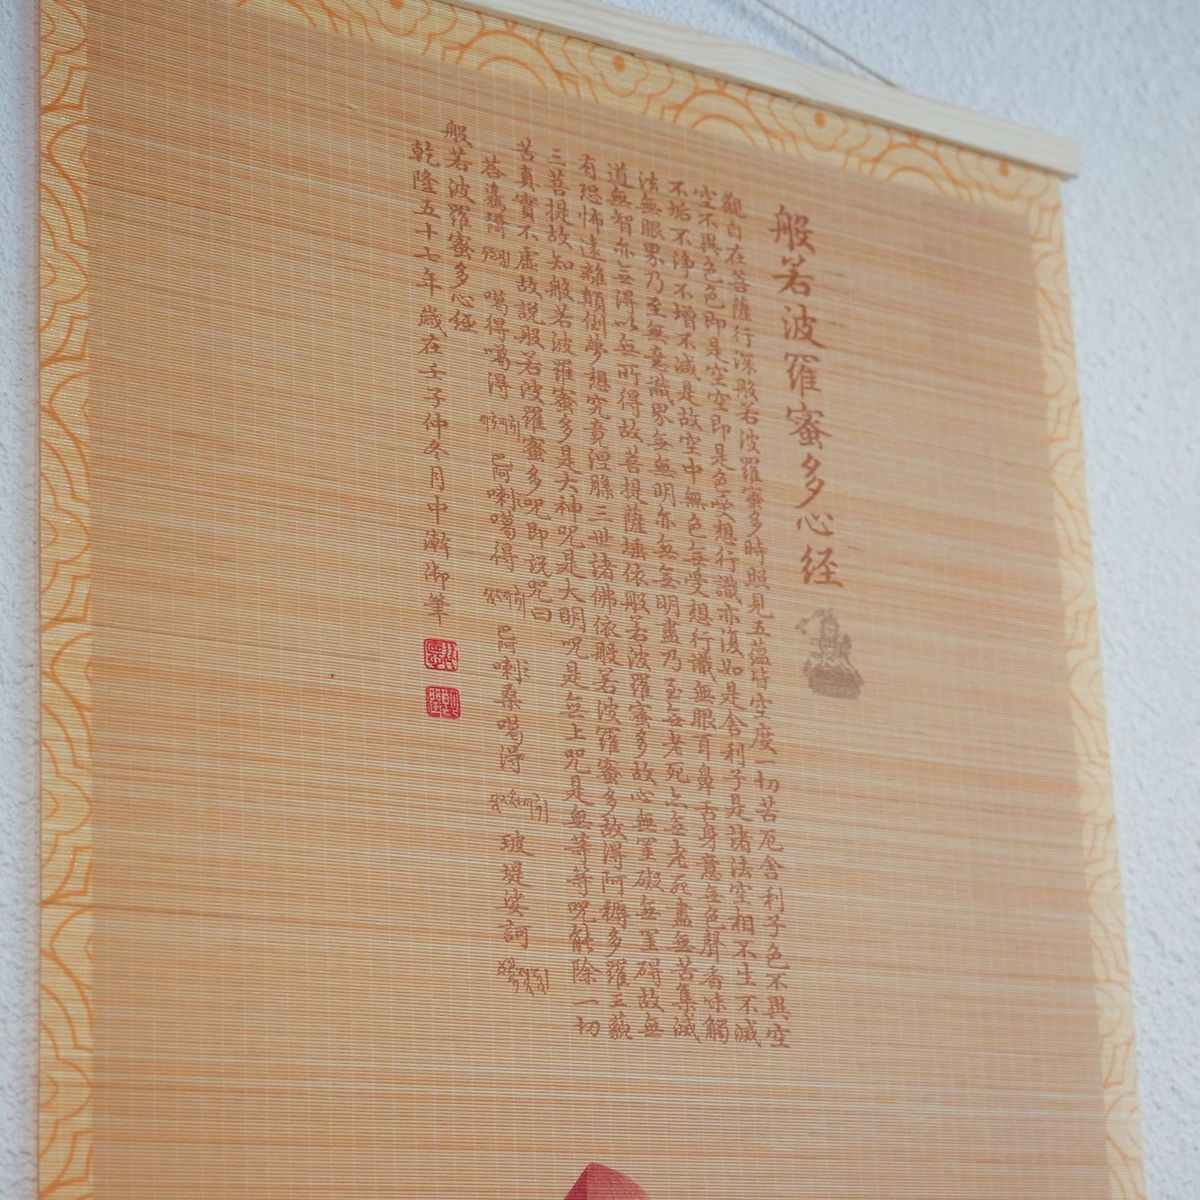 般若波羅蜜多心经
觀自在菩薩行深般若波羅蜜多時照見五蕴皆空度一切苦厄舍利子色不異空
空不異色色即是空空即是色受想行識亦復如是舍利子是諸法空相不生不滅
不垢不淨不增不减是故空中無色無受想行識無眼耳鼻舌身意無色聲香味觸
法無眼界乃至無意識界無無明亦無無明盡乃至無老死亦無老死盡無苦集滅
道無智亦無得以無所得故菩提薩埵依般若波羅蜜多故心無罣礙無罣碍故無
有恐怖遠離顛倒夢想究竟涅槃三世諸佛依般若波羅蜜多故得阿耨多羅三藐
三菩提故知般若波羅蜜多是大神咒是大明咒是無上咒是無等等咒能除一切
苦真實不虛故説般若波羅蜜多咒即説咒曰
荅嘉塔 噶得噶得 巴喇噶得 巴喇桑噶得 玻堤娑訶
般若波羅蜜多心经
乾隆五十七年歳在壬子仲冬月中澣御筆